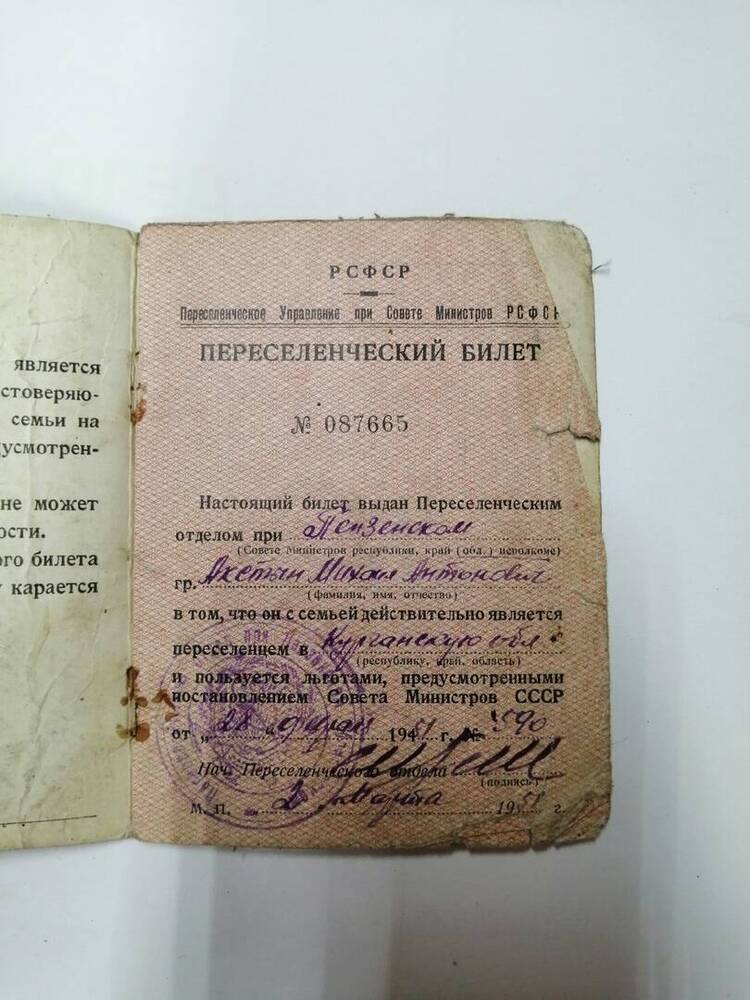 является
стоверяю-
семьи на
усмотрен-
не может
ости.
ого билета
у карается
РСФСР
Переселенческое Управление при Совете Министров РСФСР
ПЕРЕСЕЛЕНЧЕСКИЙ БИЛЕТ
№ 087665
Настоящий билет выдан Переселенческим
отделом при Пензенском
(Совете Министров республики, край (обл.) исполкоме)
гр. Ахстын Михаил Антонович
(фамилия, имя, отчество)
в том, что он с семьей действительно является
переселенцем в Курганскую обл.
(республику, край, область)
и пользуется льготами, предусмотренными
постановлением Совета Министров СССР
от „28“ февраля 1951 г. № 590
Нач. Переселенческого отдела
(подпись)
М. П. „2“ марта 1951 г.